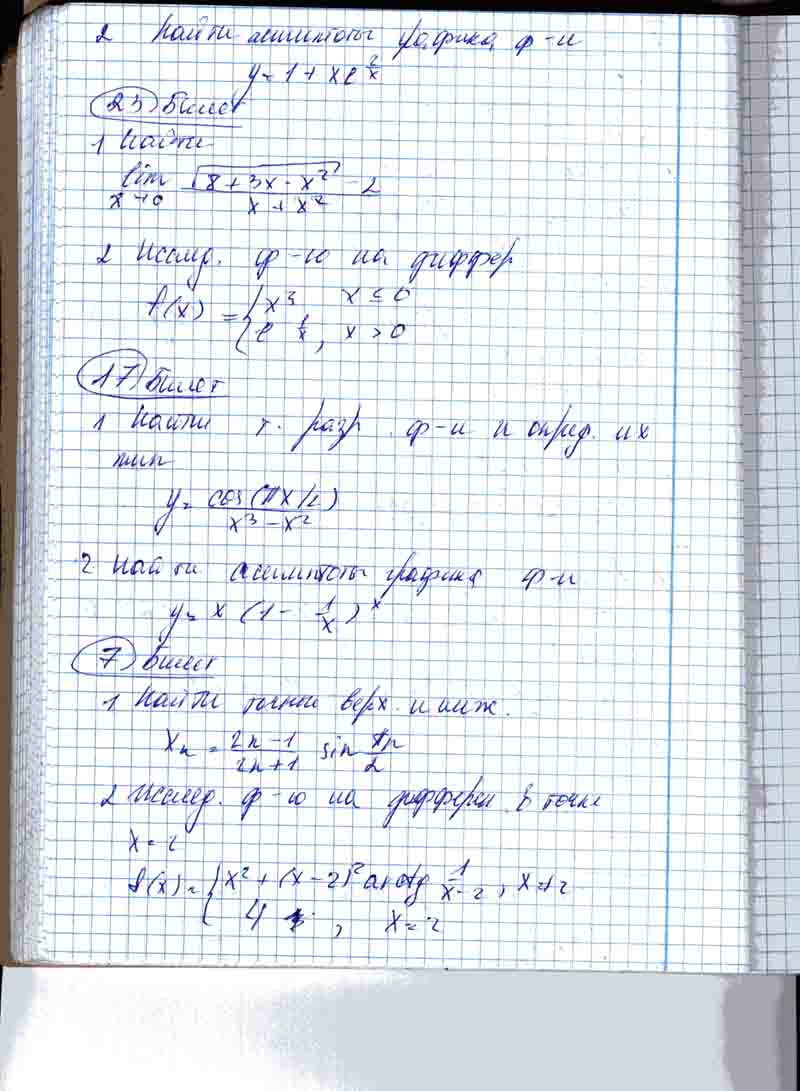 2 Найти асимптоты графика ф-и
y = 1 + xe^{2/x}
23 Билет
1 Найти
lim x→0 (√(8+3x-x²) - 2)/(x+x²)
2 Исслед. ф-ю на диффер
f(x) = { x³ x ≤ 0
e^{1/x}, x > 0
17 Билет
1 Найти т. разр. ф-и и опред. их
тип
y = cos(πx/2)/(x³-x²)
2 Найти асимптоты графика ф-и
y = x (1 - 1/x)^x
7 Билет
1 Найти точки верх. и ниж.
x_n = (2n-1)/(2n+1) sin πn/2
2 Исслед. ф-ю на дифферен в точке
x = 2
f(x) = { x² + (x-2)² arctg 1/(x-2), x ≠ 2
4, x = 2